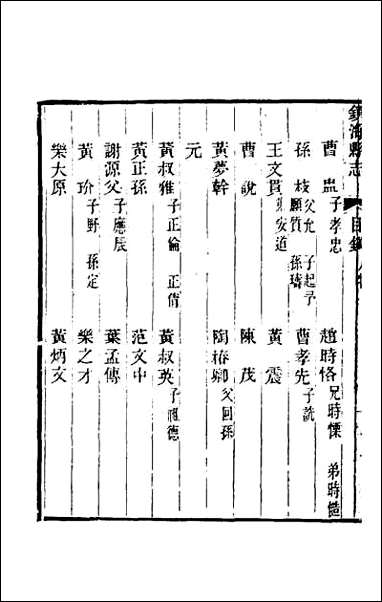 鎮海縣志 目錄 人物
曹盅 子孝忠 趙時恪 兄時慄 弟時慥
孫枝 父允 子起予 願質 孫璹 曹孝先 子說
王文貫 安道 黃震
曹說 陳茂
黃夢幹 陶椿卿 父回孫
元
黃叔雅 子正倫 正倩 黃叔英 子祖德
黃正孫 范文中
謝源父 子應辰 葉孟傳
黃玠 子野 孫定 樂之才
樂大原 黃炳文